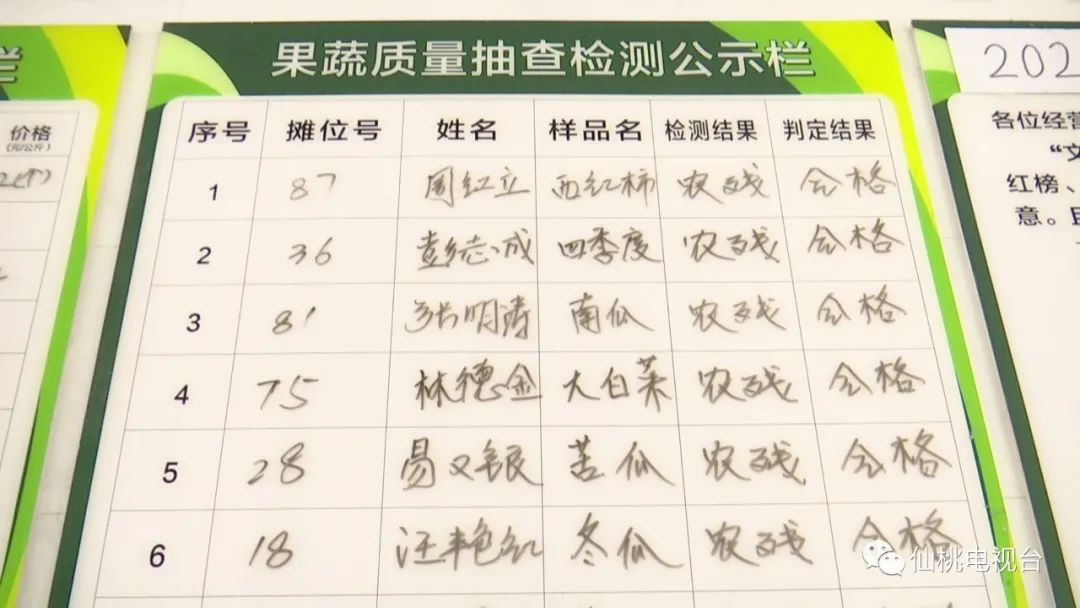 果蔬质量抽查检测公示栏
序号 摊位号 姓名 样品名 检测结果 判定结果
1 87 周红立 西红柿 农残 合格
2 36 彭志成 四季度 农残 合格
3 81 张明涛 南瓜 农残 合格
4 75 林德金 大白菜 农残 合格
5 28 易又银 苦瓜 农残 合格
6 18 汪艳红 冬瓜 农残 合格
栏
价格
(元/公斤)
202
各位经营
“文
红榜、
意。
仙桃电视台